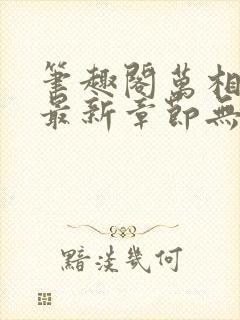 筆趣閣萬相
最新章節無
黯淡幾何